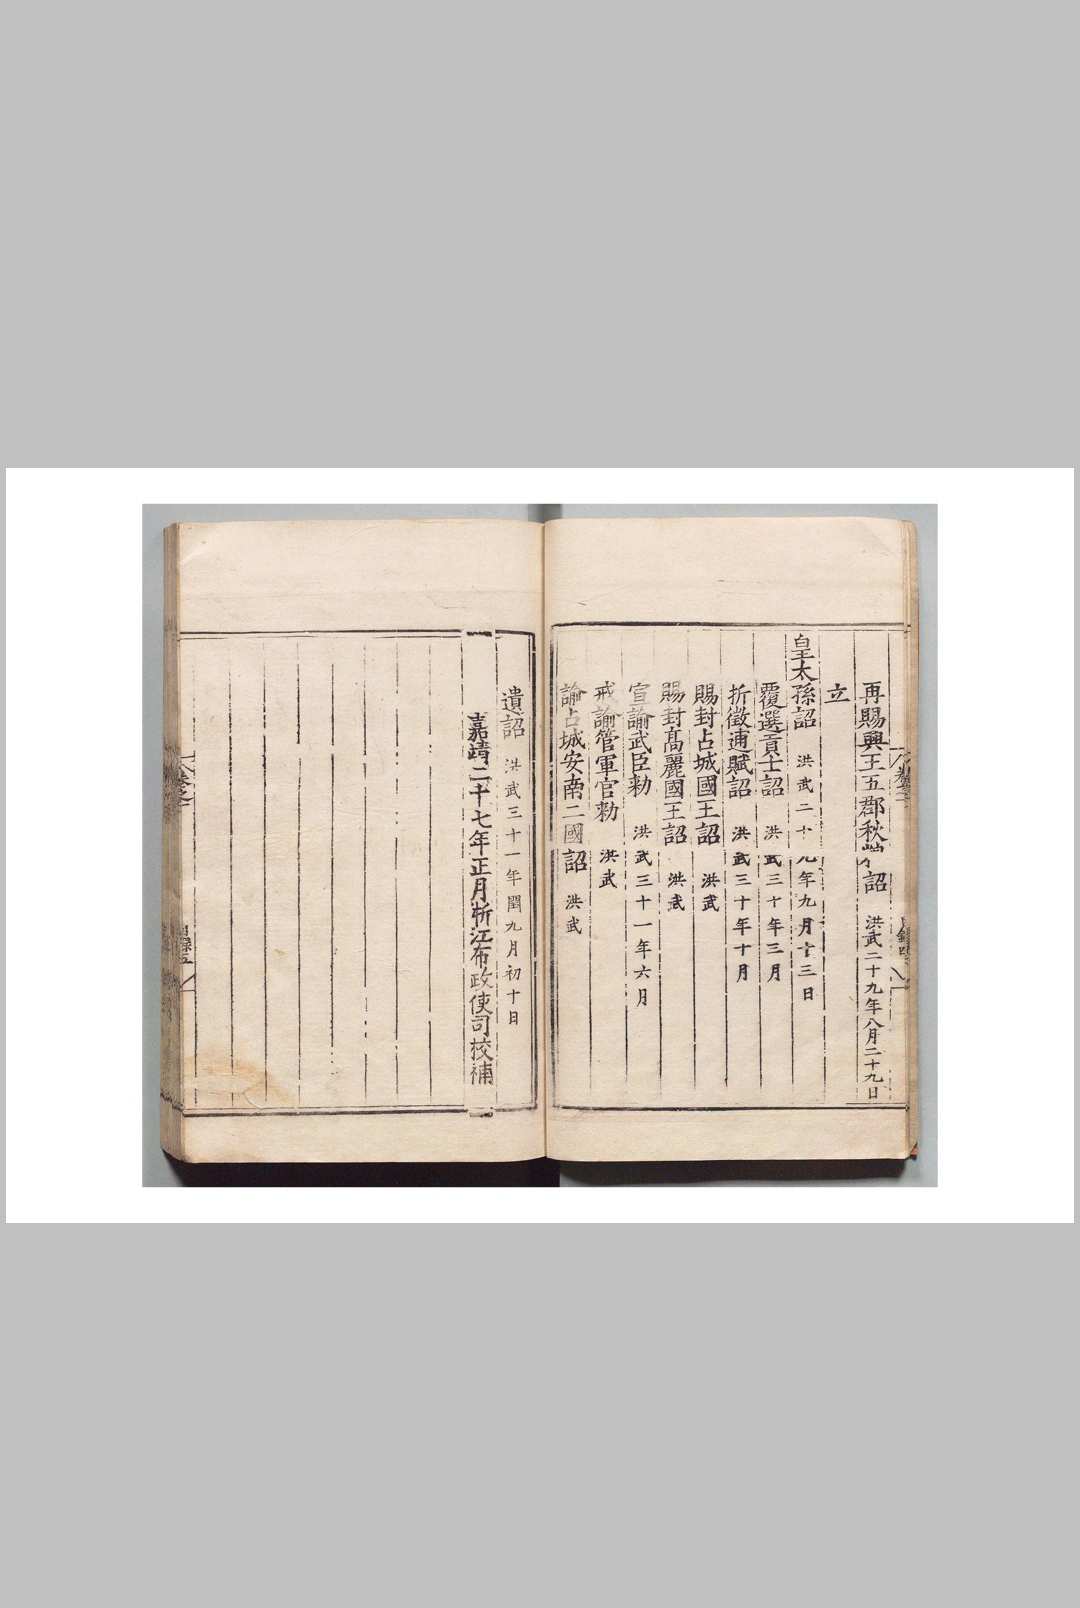 再賜興王五郡秋 詔 洪武二十九年八月二十九日
立
皇太孫詔 洪武二十九年九月十三日
覆選貢士詔 洪武三十年三月
折徵逋賦詔 洪武三十年十月
賜封占城國王詔 洪武
賜封高麗國王詔 洪武
宣諭武臣勑 洪武三十一年六月
戒諭管軍官勑 洪武
諭占城安南二國詔 洪武
遺詔 洪武三十一年閏九月初十日
嘉靖二十七年正月浙江布政使司校補
卷之